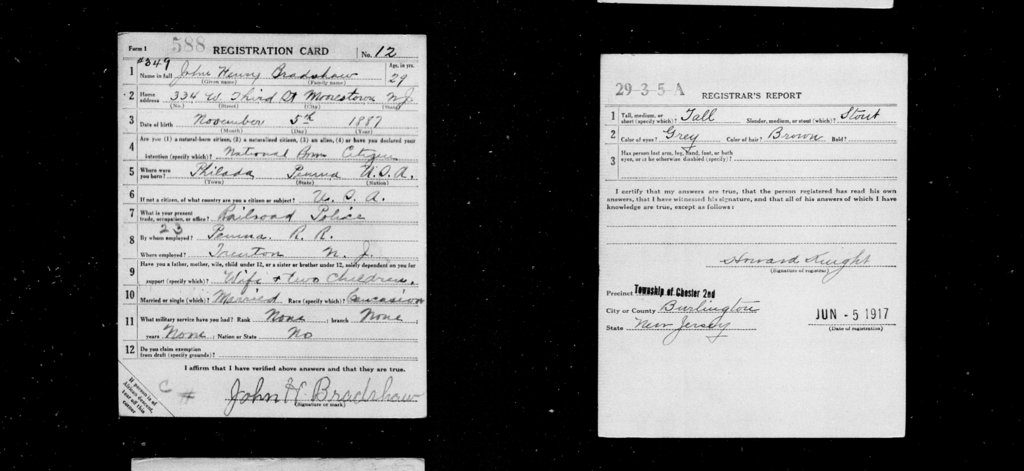 Form 1 588 REGISTRATION CARD No. 12
#349
1 Name in full John Henry Bradshaw Age, in yrs. 29
(Given name) (Family name)
2 Home address 334 W. Third St Moorestown N.J.
(No.) (Street) (City) (State)
3 Date of birth November 5th 1887
(Month) (Day) (Year)
4 Are you (1) a natural-born citizen, (2) a naturalized citizen, (3) an alien, (4) or have you declared your
intention (specify which)? National Born Citizen
5 Where were you born? Philada Penna U.S.A.
(Town) (State) (Nation)
6 If not a citizen, of what country are you a citizen or subject? U.S.A.
7 What is your present trade, occupation, or office? Railroad Police
23
8 By whom employed? Penna. R. R.
Where employed? Trenton N. J.
9 Have you a father, mother, wife, child under 12, or a sister or brother under 12, solely dependent on you for
support (specify which)? Wife + two children.
10 Married or single (which)? Married Race (specify which)? Caucasion
11 What military service have you had? Rank None; branch None;
years None; Nation or State No
12 Do you claim exemption from draft (specify grounds)?
I affirm that I have verified above answers and that they are true.
C #
John H Bradshaw
(Signature or mark)
If person is of
African descent,
tear off this
corner
29-3-5 A REGISTRAR'S REPORT
1 Tall, medium, or short (specify which)? Tall Slender, medium, or stout (which)? Stout
2 Color of eyes? Grey Color of hair? Brown Bald?
3 Has person lost arm, leg, hand, foot, or both
eyes, or is he otherwise disabled (specify)?
I certify that my answers are true, that the person registered has read his own
answers, that I have witnessed his signature, and that all of his answers of which I have
knowledge are true, except as follows:
Howard Knight
(Signature of registrar)
Precinct Township of Chester 2nd
City or County Burlington
State New Jersey
JUN - 5 1917
(Date of registration)